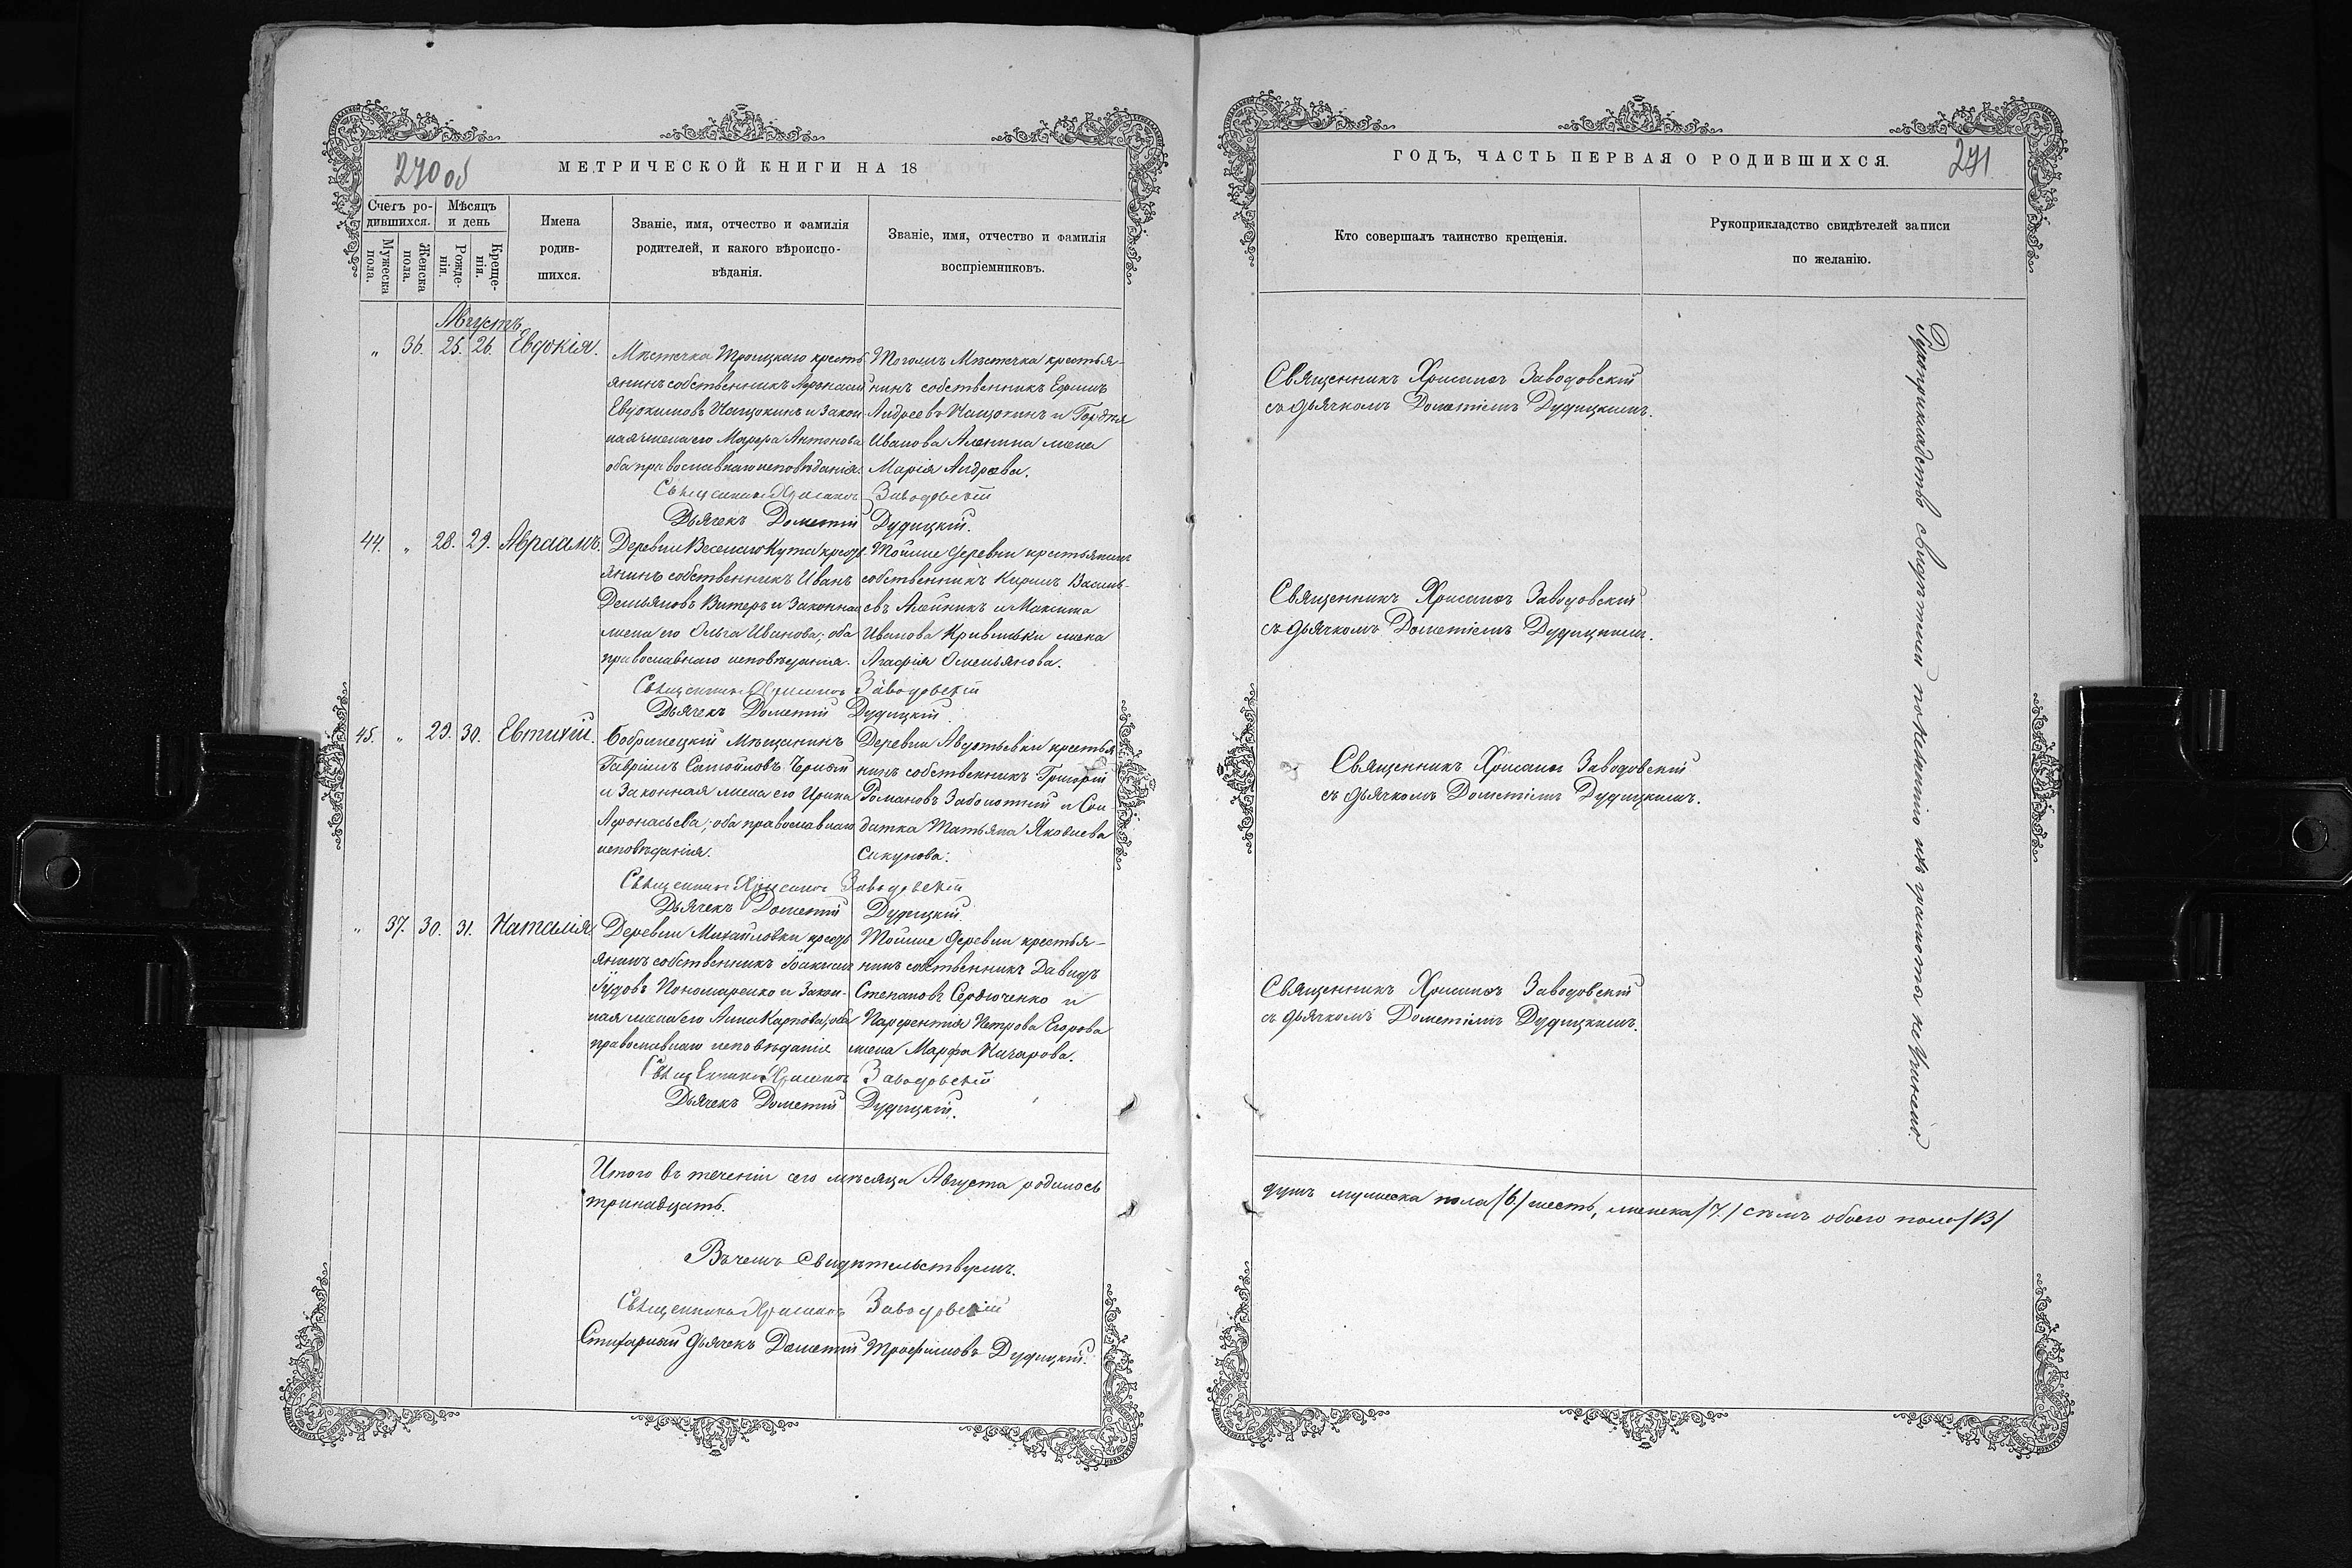 270 об
МЕТРИЧЕСКОЙ КНИГИ НА 18
Счетъ ро-
дившихся.
Мѣсяцъ
и день
Мужеска
пола.
Женска
пола.
Рожде-
нія.
Креще-
нія.
Имена
родив-
шихся.
Званіе, имя, отчество и фамилія
родителей, и какого вѣроиспо-
вѣданія.
Званіе, имя, отчество и фамилія
воспріемниковъ.
Августъ
„ 36. 25. 26. Евдокія.
Мѣстечка Троицкаго кресть-
янинъ собственникъ Афанасій
Евдокимовъ Нащокинъ и закон-
ная жена его Марфа Антонова
оба православнаго исповѣданія.
Тогожъ Мѣстечка крестья-
нинъ собственникъ Ефимъ
Андреевъ Нащокинъ и Гордѣя
Иванова Аленина жена
Марія Андреева.
Священникъ Хрисанѳъ Заводовскій
Дьячекъ Дометій Дудицкій.
44. „ 28. 29. Авраамъ.
Деревни Веселаго Кута кресть-
янинъ собственникъ Иванъ
Демьяновъ Витеръ и законная
жена его Ольга Иванова; оба
православнаго исповѣданія.
Тойже деревни крестьянинъ
собственникъ Кирилъ Василь-
евъ Алейникъ и Максима
Иванова жена
Агафія Омельянова.
Священникъ Хрисанѳъ Заводовскій
Дьячекъ Дометій Дудицкій.
45. „ 29. 30. Евтихій.
Бобринецкій Мѣщанинъ
Гавріилъ Самойловъ Черный
и законная жена его Ирина
Афонасьева; оба православнаго
исповѣданія.
Деревни Авдотьевки крестья
нинъ собственникъ Григорій
Романовъ Заболотній и Сол
датка Татьяна Яковлева
Сикунова.
Священникъ Хрисанѳъ Заводовскій
Дьячекъ Дометій Дудицкій.
„ 37. 30. 31. Наталія.
Деревни Михайловки кресть
янинъ собственникъ Іоакимъ
Іудовъ Пономаренко и закон-
ная жена его Анна Карпова; оба
православнаго исповѣданія
Тойже деревни крестья-
нинъ собственникъ Давидъ
Степановъ Сердюченко и
Парфентія Петрова Егорова
жена Марфа Назарова.
Священникъ Хрисанѳъ Заводовскій
Дьячекъ Дометій Дудицкій.
Итого въ теченіи сего мѣсяца Августа родилось
тринадцать.
Въ чемъ свидѣтельствуемъ.
Священникъ Хрисанѳъ Заводовскій
Стихарный дьячекъ Дометій Трофимовъ Дудицкій.
ГОДЪ, ЧАСТЬ ПЕРВАЯ О РОДИВШИХСЯ.
271
Кто совершалъ таинство крещенія.
Рукоприкладство свидѣтелей записи
по желанію.
Священникъ Хрисанѳъ Заводовскій
съ дьячкомъ Дометіемъ Дудицкимъ.
Священникъ Хрисанѳъ Заводовскій
съ дьячкомъ Дометіемъ Дудицкимъ.
Священникъ Хрисанѳъ Заводовскій
съ дьячкомъ Дометіемъ Дудицкимъ.
Священникъ Хрисанѳъ Заводовскій
съ дьячкомъ Дометіемъ Дудицкимъ.
Рукоприкладство свидѣтелей по желанію
душъ мужеска пола /6/ шесть, женска /7/ семъ обоего пола /13/